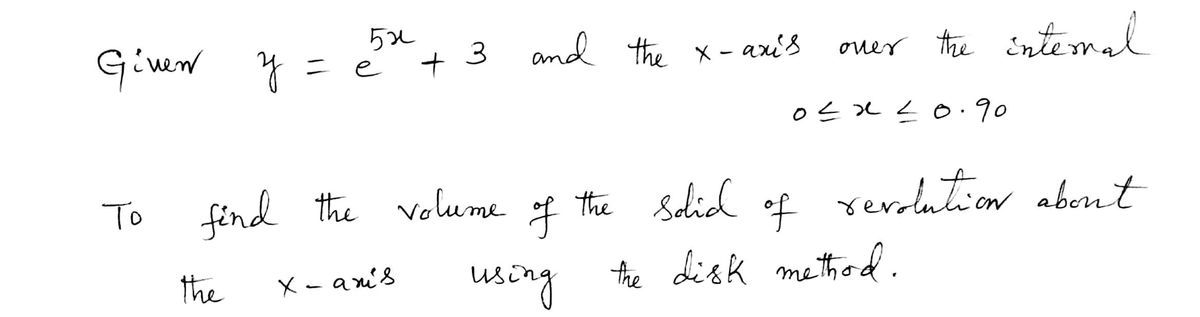 Given y = e^{5x} + 3 and the x-axis over the interval
0 ≤ x ≤ 0.90
To find the volume of the solid of revolution about
the x-axis using the disk method.